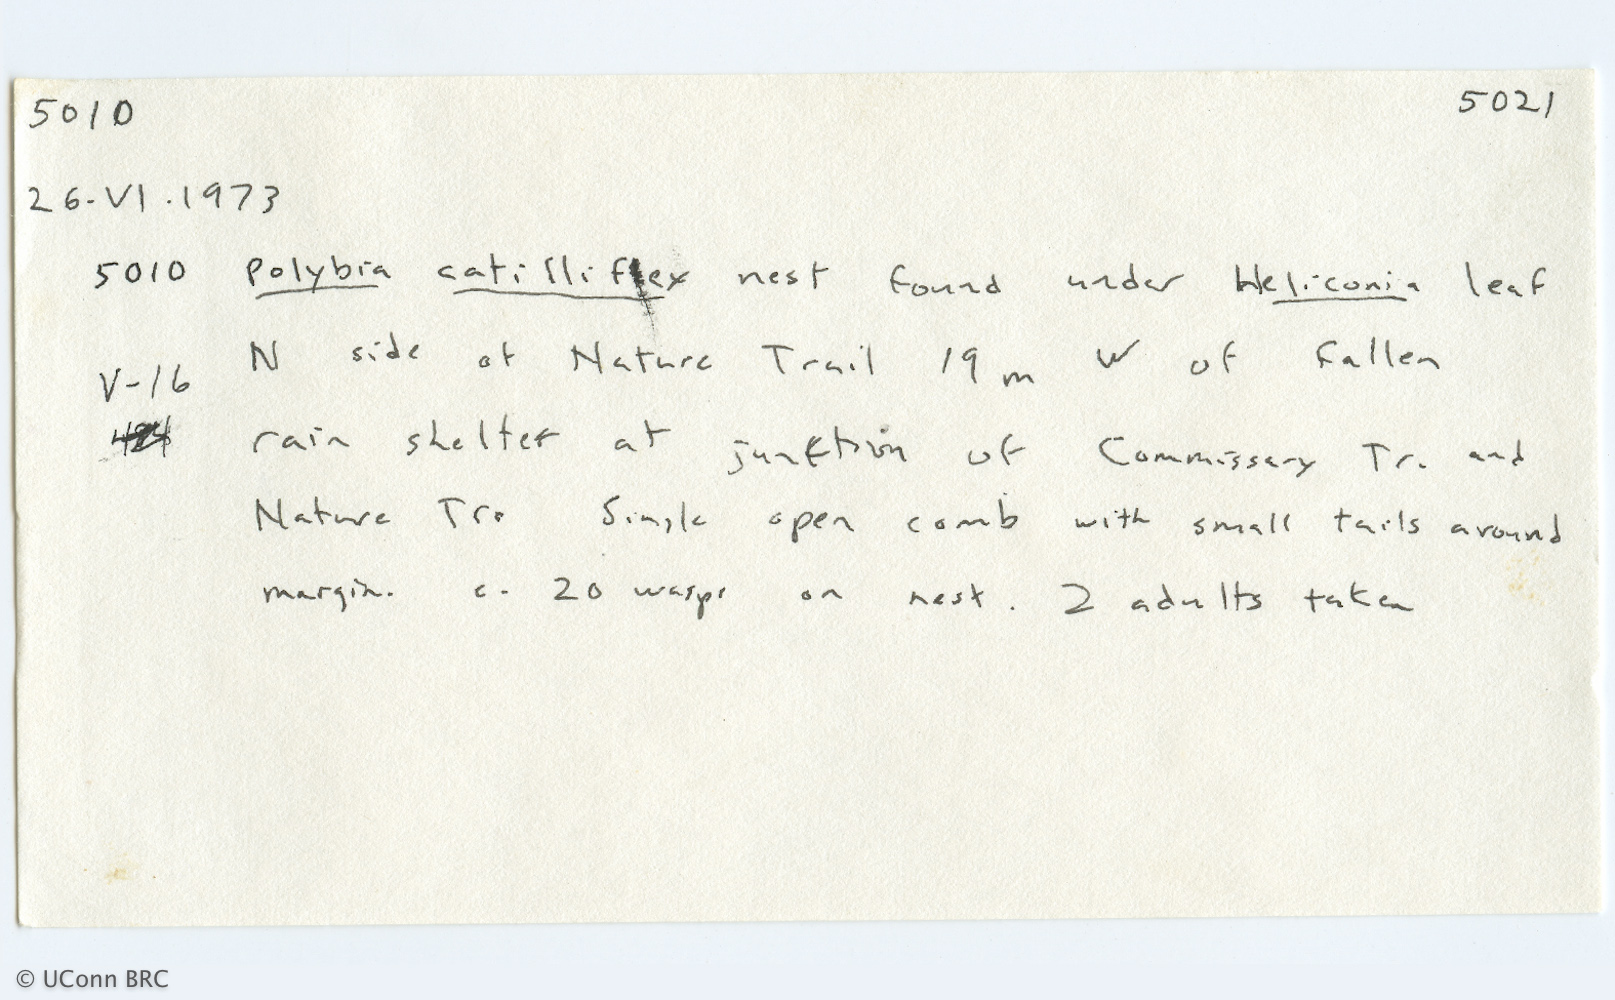 5010 5021
26-VI.1973
5010 Polybia catillifex nest found under Heliconia leaf
N side of Nature Trail 19 m W of fallen
V-16
rain shelter at junction of Commissary Tr. and
Nature Tr. Single open comb with small tails around
margin. c. 20 wasps on nest. 2 adults taken
© UConn BRC